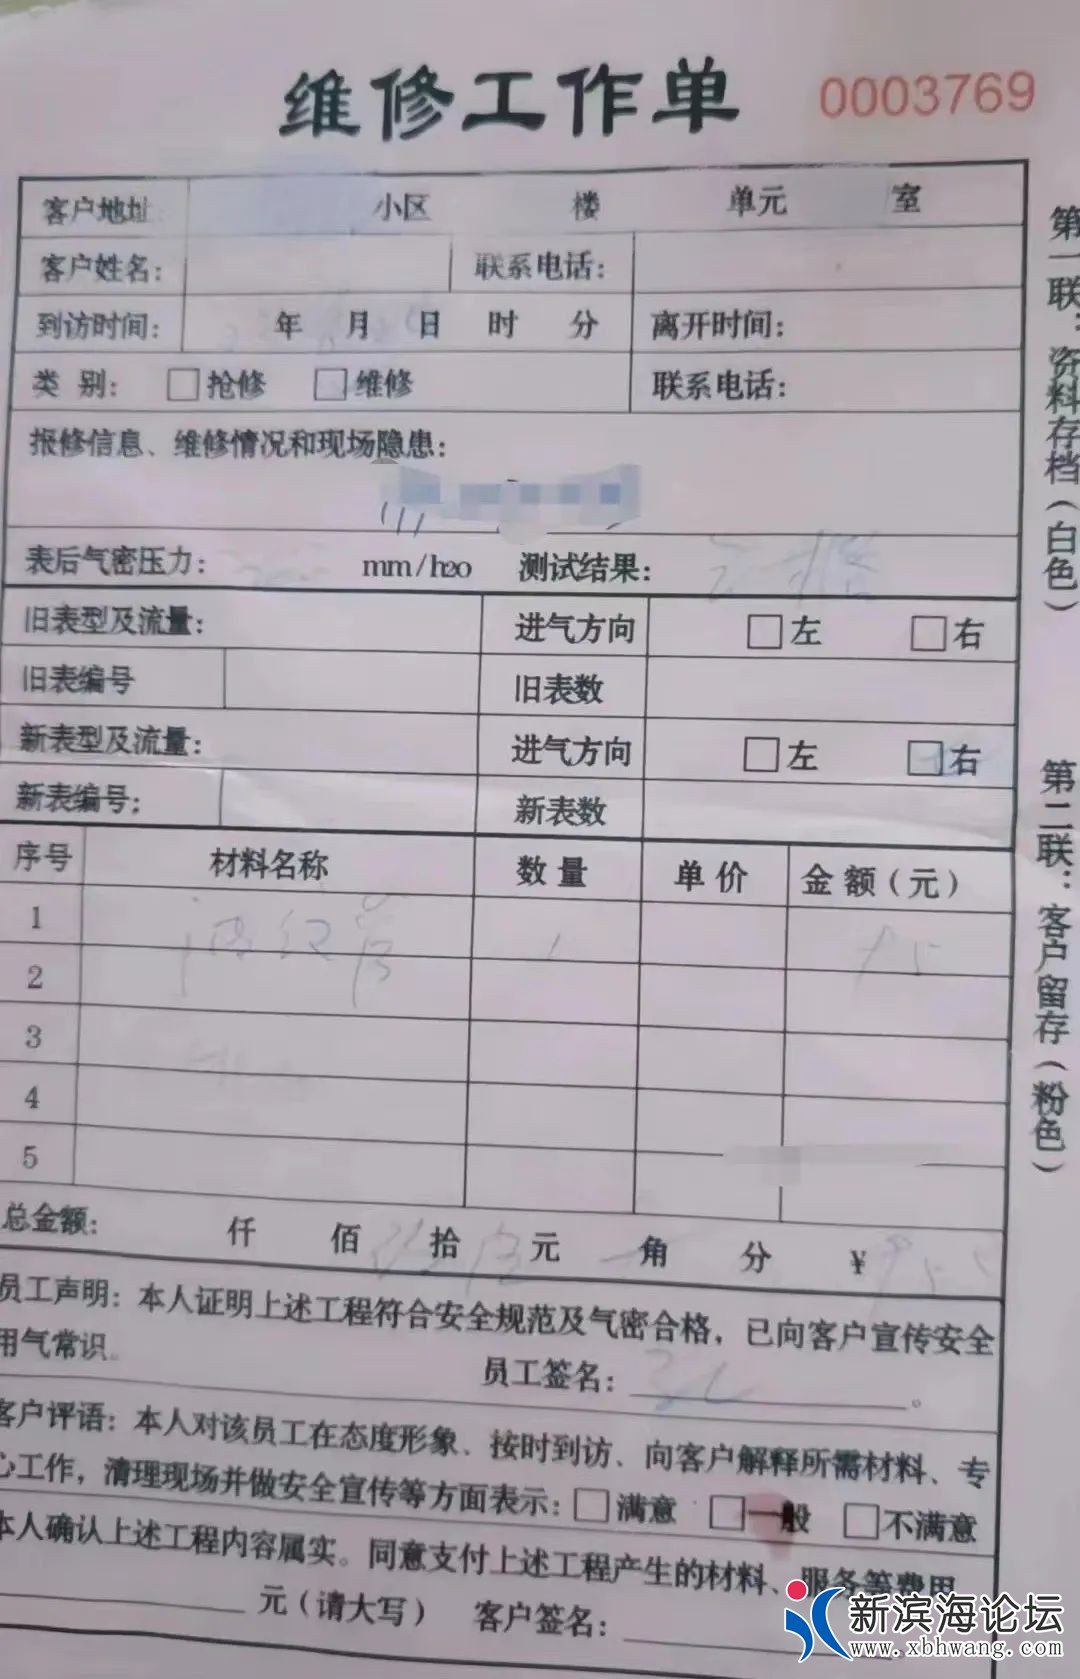 维修工作单 0003769
客户地址: 小区 楼 单元 室
客户姓名: 联系电话:
到访时间: 年 月 日 时 分 离开时间:
类 别: □抢修 □维修 联系电话:
报修信息、维修情况和现场隐患:
表后气密压力: mm/h2o 测试结果:
旧表型及流量: 进气方向 □左 □右
旧表编号 旧表数
新表型及流量: 进气方向 □左 □右
新表编号: 新表数
序号 材料名称 数量 单价 金额(元)
1
2
3
4
5
总金额: 仟 佰 拾 元 角 分 ¥
员工声明: 本人证明上述工程符合安全规范及气密合格, 已向客户宣传安全
用气常识。
员工签名: 。
客户评语: 本人对该员工在态度形象、按时到访、向客户解释所需材料、专
心工作, 清理现场并做安全宣传等方面表示: □满意 □一般 □不满意
本人确认上述工程内容属实。同意支付上述工程产生的材料、服务等费用
元(请大写) 客户签名:
第一联: 资料存档(白色)
第二联: 客户留存(粉色)
新滨海论坛
www.xbhwang.com